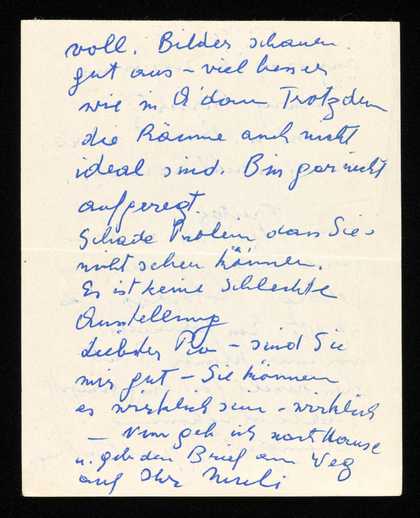 voll. Bilder schauen
gut aus – viel besser
wie in A'dam Trotzdem
die Räume auch nicht
ideal sind. Bin gar nicht
aufgeregt
Schade Problem dass Sie
nicht sehen können.
Es ist keine schlechte
Ausstellung
Liebster – sind Sie
mir gut – Sie können
es wirklich sein – wirklich
– Nun geh ich nach Hause
u. geb den Brief am Weg
auf Ihr